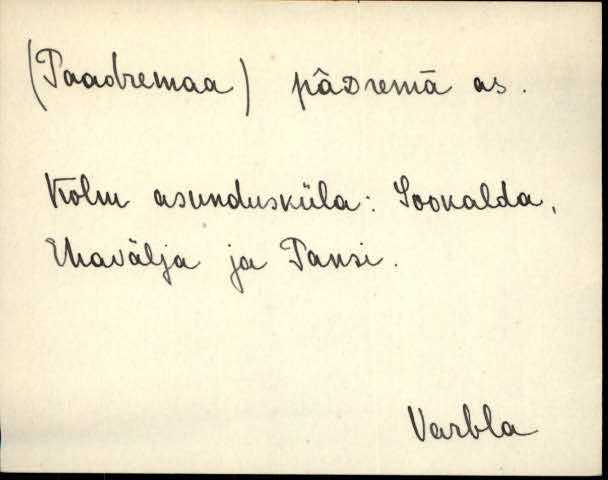 (Paadremaa) pâᴅremā as.
Kolm asundusküla: Sookalda,
Ehavälja ja Pansi.
Varbla